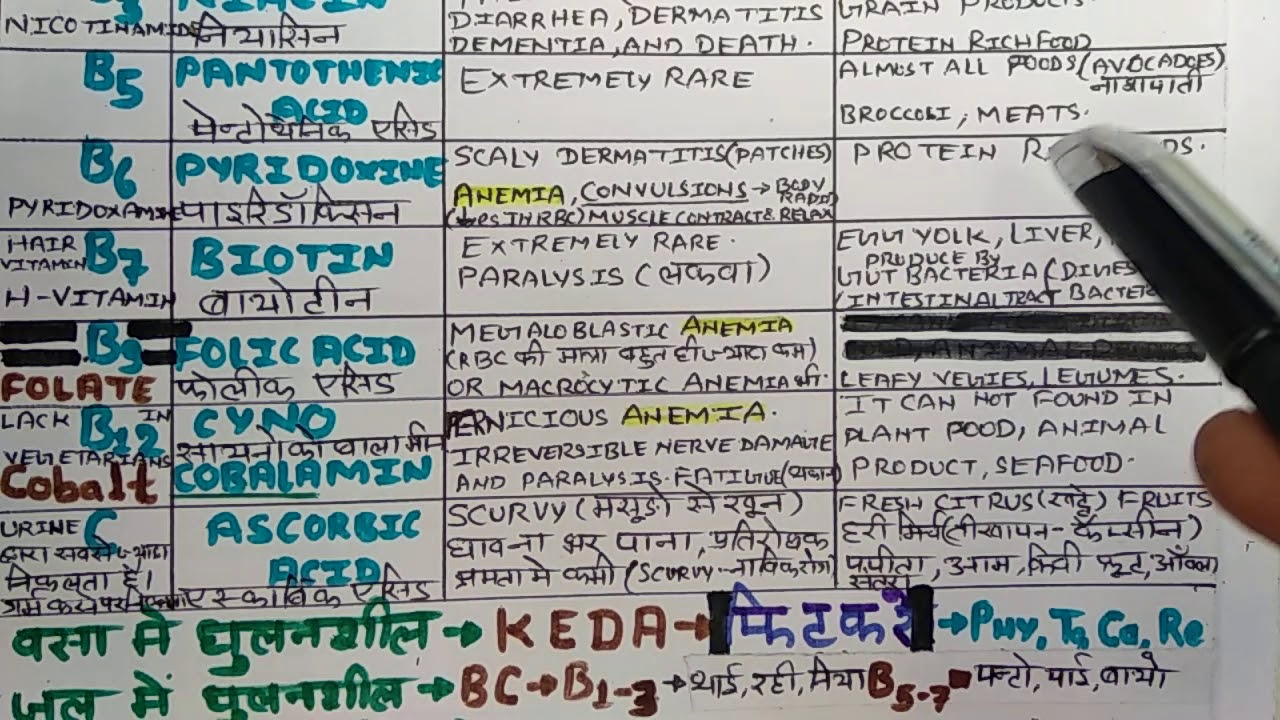 NICOTINAMIDE नियासिन DIARRHEA, DERMATITIS
DEMENTIA, AND DEATH. PROTEIN RICH FOOD
B5 PANTOTHENIC ACID
पेन्टोथैनिक एसिड
EXTREMELY RARE
ALMOST ALL FOODS (AVOCADOES)
नाशपाती
BROCCOLI, MEATS.
B6
PYRIDOXAMINE
PYRIDOXINE
पाइरिडॉक्सिन
SCALY DERMATITIS (PATCHES)
ANEMIA, CONVULSIONS → BODY
MUSCLE CONTRACT & RELAX
PROTEIN
HAIR
VITAMIN B7
H-VITAMIN
BIOTIN
बायोटीन
EXTREMELY RARE.
PARALYSIS (लकवा)
EGG YOLK, LIVER,
PRODUCE BY
GUT BACTERIA
(INTESTINAL TRACT
B9
FOLATE
FOLIC ACID
फोलीक एसिड
MEGALOBLASTIC ANEMIA
(RBC की मात्रा बहुत ही ज्यादा कम)
OR MACROCYTIC ANEMIA भी.
LEAFY VEGIES, LEGUMES.
LACK IN
B12
VEGETARIANS
Cobalt
CYNO
सायनोकोबालामीन
COBALAMIN
PERNICIOUS ANEMIA.
IRREVERSIBLE NERVE DAMAGE
AND PARALYSIS. FATIGUE (थकान)
IT CAN NOT FOUND IN
PLANT FOOD, ANIMAL
PRODUCT, SEAFOOD.
URINE C
द्वारा सबसे ज्यादा
निकलता है।
ASCORBIC
ACID
एस्कार्बिक एसिड
SCURVY (मसूड़ो से खून)
घाव ना भर पाना, प्रतिरोधक
क्षमता मे कमी (SCURVY-नाविक रोग)
FRESH CITRUS (खट्टे) FRUITS
हरी मिर्च (तीखापन-कैप्सीन)
पपीता, आम, किवी फ्रूट, आँवला
संतरा
वसा मे घुलनशील → KEDA →
जल में घुलनशील → BC → B1-3 → थाई, रही, निया B5-7 पन्टो, पाई, बायो